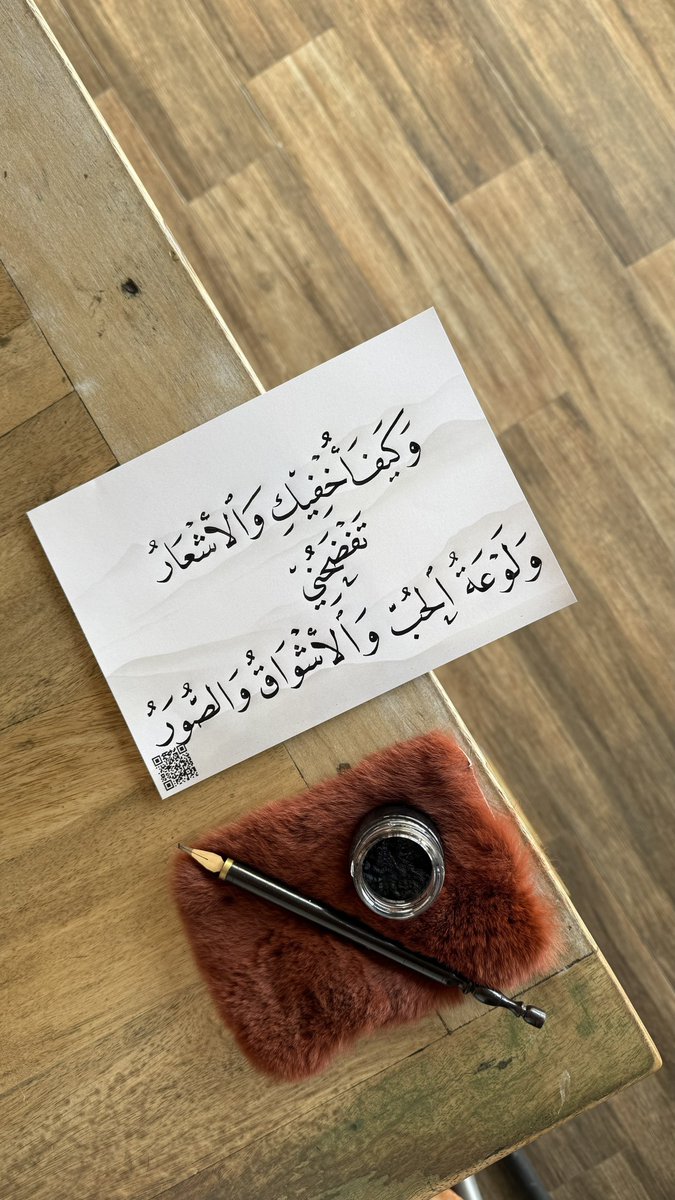 وَكَيْفَ أُخْفِيْكِ وَٱلْأَشْعَارُ
تَفْضَحُنِيْ
وَلَوْعَةُ ٱلْحُبِّ وَٱلْأَشْوَاقُ وَالصُّوَرُ